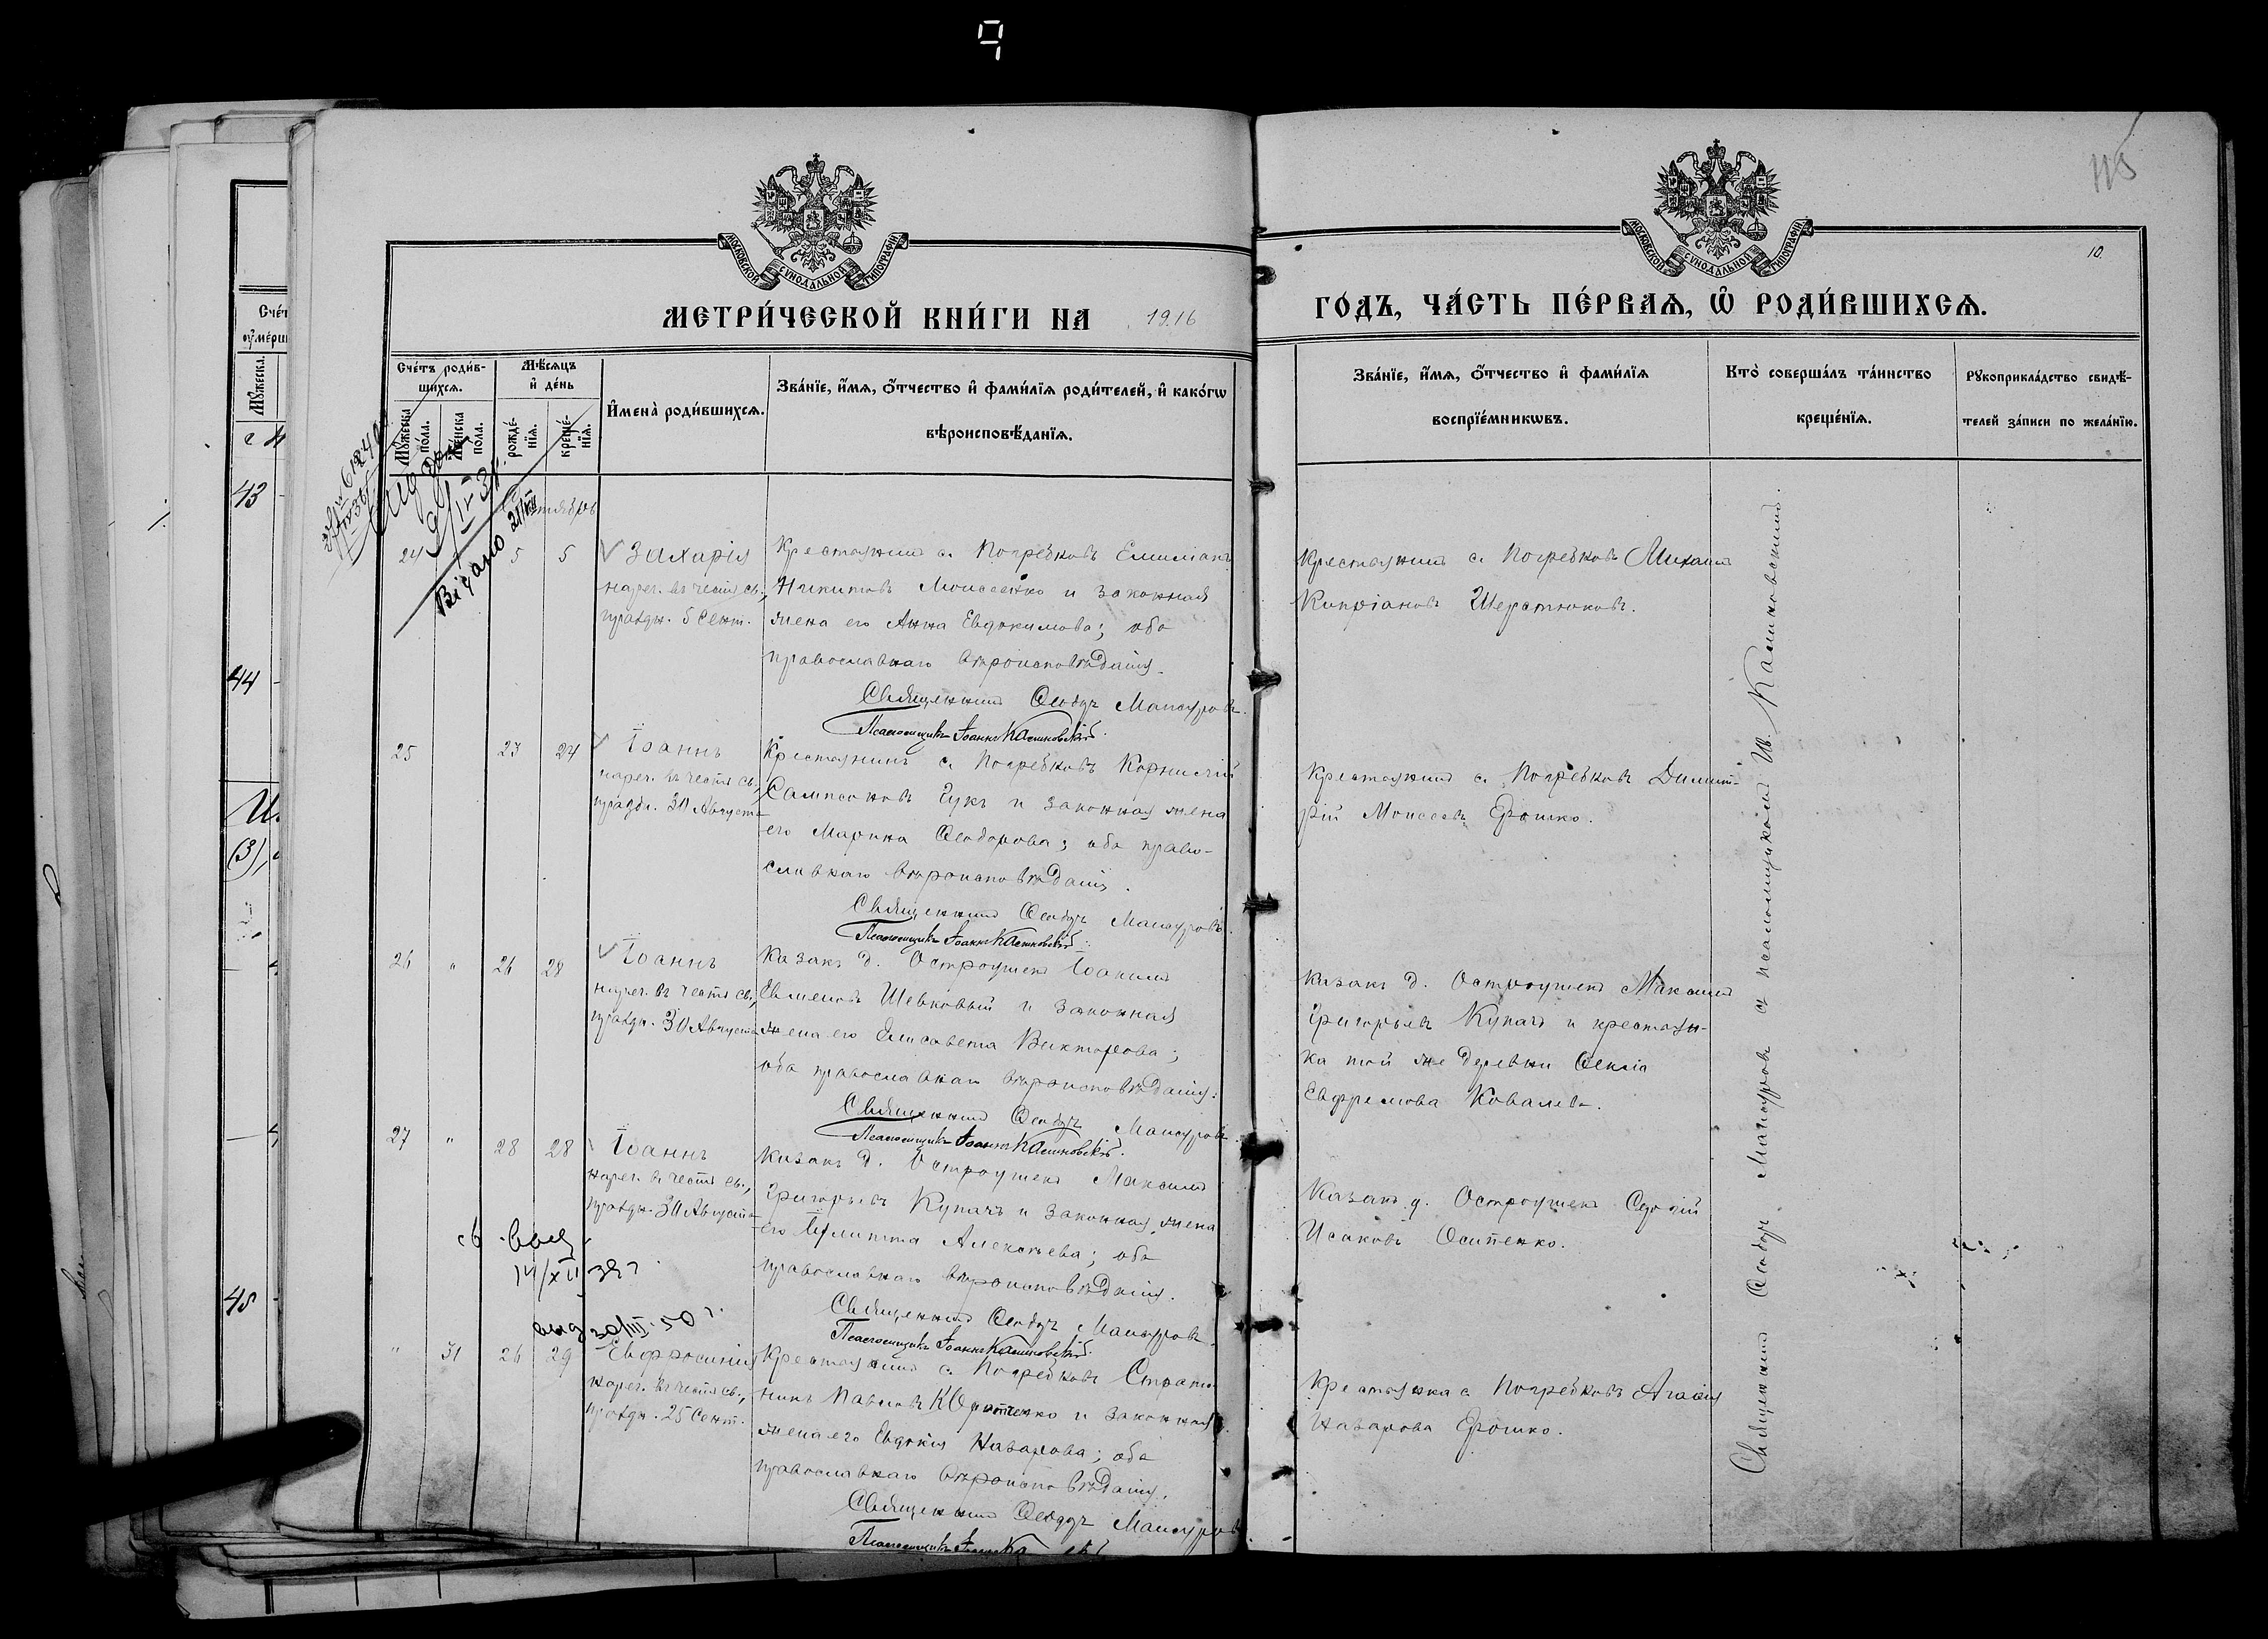 9
115
10.
МОСКОВСКОЙ СѴНОДАЛЬНОЙ ТИПОГРАФІИ
МОСКОВСКОЙ СѴНОДАЛЬНОЙ ТИПОГРАФІИ
МЕТРИ́ЧЕСКОЙ КНИ́ГИ НА 1916
ГО́ДЪ, ЧА́СТЬ ПЕ́РВАЯ, Ѿ РОДИ́ВШИХСЯ.
Сче́тъ роди́в-
шихся.
Мѣ́сяцъ
и҆ де́нь
Мꙋ́жеска
по́ла.
Же́нска
пола.
рожде́-
нїя.
креще́-
нїя.
И҆мена̀ роди́вшихся.
Зва́нїе, и҆́мя, о҆́тчество и҆ фами́лїя роди́телей, и҆ како́гѡ
вѣроисповѣ́данїя.
Зва́нїе, и҆́мя, о҆́тчество и҆ фами́лїя
воспрїе́мникѡвъ.
Кто̀ соверша́лъ та́инство
креще́нїя.
Рꙋкоприкла́дство свидѣ́-
телей за́писи по жела́нїю.
Сентябрь
24
5 5
Захарія
нареч. въ честь св.,
праздн. 5 Сент.
Крестьянинъ с. Погребковъ Емиліанъ
Никитовъ Моисеенко и законная
жена его Анна Евдокимова; оба
православнаго вѣроисповѣданія.
Священникъ Ѳеодоръ Мансуровъ.
Псаломщикъ Іоаннъ Калиновскій.
Крестьянинъ с. Погребковъ Михаилъ
Кипріановъ Шерстюковъ.
Видано
25
23 24
Іоаннъ
нареч. въ честь св.,
праздн. 30 Августа
Крестьянинъ с. Погребковъ Корнилій
Сампсоновъ Гукъ и законная жена
его Марина Ѳеодорова; оба право-
славнаго вѣроисповѣданія.
Священникъ Ѳеодоръ Мансуровъ.
Псаломщикъ Іоаннъ Калиновскій.
Крестьянинъ с. Погребковъ Димит-
рій Моисеевъ Ерошко.
26 " 26 28
Іоаннъ
нареч. въ честь св.,
праздн. 30 Августа
Казакъ д. Остроушекъ Іоакимъ
Евменовъ Шевковый и законная
жена его Елисавета Викторова;
оба православнаго вѣроисповѣданія.
Священникъ Ѳеодоръ Мансуровъ
Псаломщикъ Іоаннъ Калиновскій.
Казакъ д. Остроушекъ Максимъ
Григорьевъ Купачъ и крестьян-
ка той же деревни Ѳекла
Евфремова Ковалева.
27 " 28 28
Іоаннъ
нареч. въ честь св.,
праздн. 30 Августа
Казакъ д. Остроушекъ Максимъ
Григорьевъ Купачъ и законная жена
его Іулитта Алексѣева; оба
православнаго вѣроисповѣданія.
Священникъ Ѳеодоръ Мансуровъ.
Псаломщикъ Іоаннъ Калиновскій.
Казакъ д. Остроушекъ Сергій
Исаковъ Осипенко.
14/XII 39 г.
выд 30/III. 50 г.
" 31 26 29
Евфросинія
нареч. въ честь св.,
праздн. 25 Сент.
Крестьянинъ с. Погребковъ Страто-
никъ Павловъ и законная
жена его Евдокія Назарова; оба
православнаго вѣроисповѣданія.
Священникъ Ѳеодоръ Мансуровъ
Псаломщикъ
Крестьянка с. Погребковъ Агафія
Назарова Ерошко.
Священникъ Ѳеодоръ Мансуровъ съ псаломщикомъ Ів. Калиновскимъ.
Сче́т
Мꙋ́жеска
43
44
(3),
45